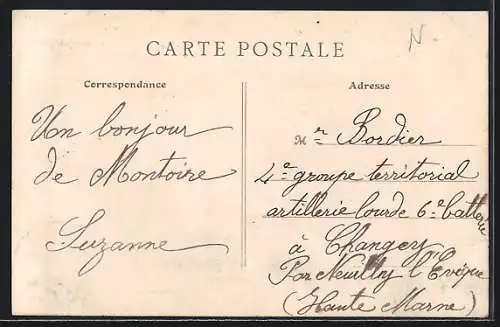 N.
CARTE POSTALE
Correspondance
Adresse
Un bonjour
de Montoire
Suzanne
Mr Bordier
4e groupe territorial
artillerie lourde 6e batterie
à Changey
Par Neuilly l'Evêque
(Haute Marne)